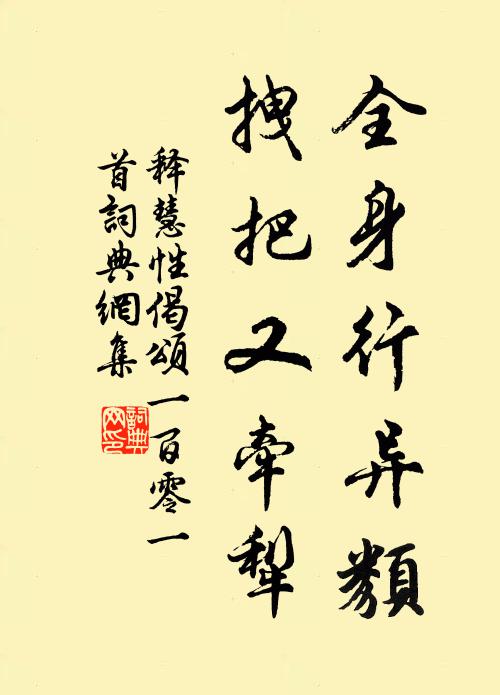 全身行异類
拽把又牽犁
释慧性偈頌一百零一
首詞典網集
詞典网印